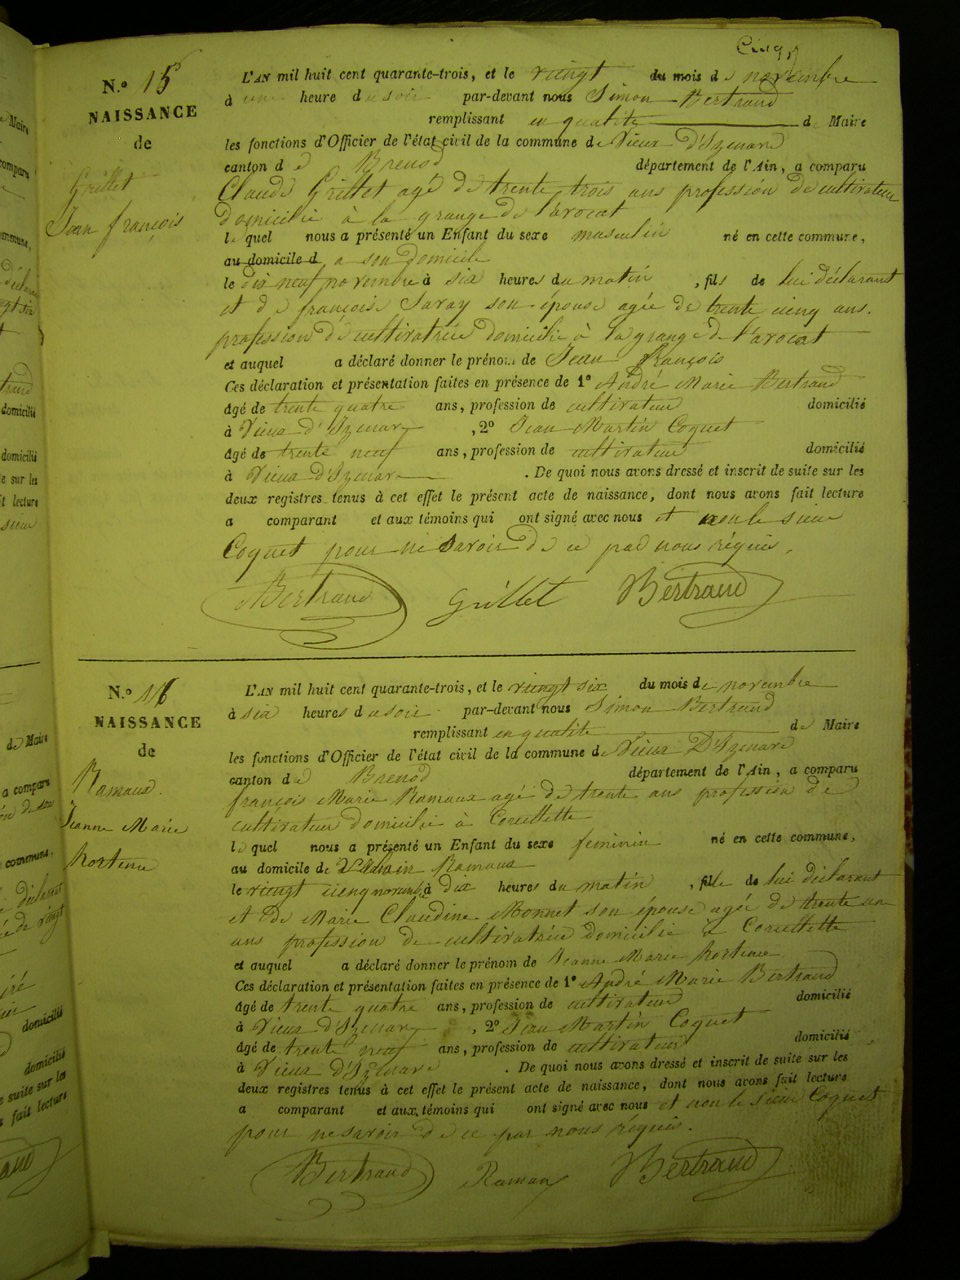 Cinq
N.° 15
NAISSANCE
de
Grillet
Jean françois
L'AN mil huit cent quarante-trois, et le viengt du mois de novembre
à une heure du soir par-devant nous Simon Bertrand
remplissant en qualité de Maire
les fonctions d'Officier de l'état civil de la commune de Vieux D'Izenave
canton de Brenod département de l'Ain, a comparu
Claude Grillet agé de trente trois ans profession de cultivateur
domicilié à la grange de l'avocat
lequel nous a présenté un Enfant du sexe masculin né en cette commune,
au domicile d a son domicile
le dix neuf novembre à six heures du matin, fils de lui déclarant
et de françoise Savay son épouse agée de trente cinq ans.
profession de cultivatrice domicilié à la grange de l'avocat
et auquel a déclaré donner le prénom de Jean François
Ces déclaration et présentation faites en présence de 1° André Marie Bertrand
âgé de trente quatre ans, profession de cultivateur domicilié
à Vieux d'Izenave, 2° Jean Martin Coquet
âgé de trente neuf ans, profession de cultivateur domicilié
à Vieux D'Izenave. De quoi nous avons dressé et inscrit de suite sur les
deux registres tenus à cet effet le présent acte de naissance, dont nous avons fait lecture
a comparant et aux témoins qui ont signé avec nous et non le sieur
Coquet pour ne savoir de ce par nous réquis.
Bertrand Grillet Bertrand
N.° 16
NAISSANCE
de
Ramaux.
Jeanne Marie
hortense
L'AN mil huit cent quarante-trois, et le viengt six du mois de novembre
à six heures du soir par-devant nous Simon Bertrand
remplissant en qualité de Maire
les fonctions d'Officier de l'état civil de la commune de Vieux D'Izenave
canton de Brenod département de l'Ain, a comparu
françois Marie Ramaux agé de trente ans profession de
cultivateur domicilié à Corcellette
lequel nous a présenté un Enfant du sexe feminin né en cette commune,
au domicile de Ramaux
le viengt cienq novembre à dix heures du matin, fille de lui déclarant
et de Marie Claudine Monnet son épouse agée de trente un
ans profession de cultivatrice domicilié à Corcellette
et auquel a déclaré donner le prénom de Jeanne Marie hortense
Ces déclaration et présentation faites en présence de 1° André Marie Bertrand
âgé de trente quatre ans, profession de cultivateur domicilié
à Vieux d'Izenave, 2° Jean Martin Coquet
âgé de trente neuf ans, profession de cultivateur domicilié
à Vieux D'Izenave. De quoi nous avons dressé et inscrit de suite sur les
deux registres tenus à cet effet le présent acte de naissance, dont nous avons fait lecture
a comparant et aux témoins qui ont signé avec nous et non le sieur Coquet
pour ne savoir de ce par nous réquis.
Bertrand Ramaux Bertrand